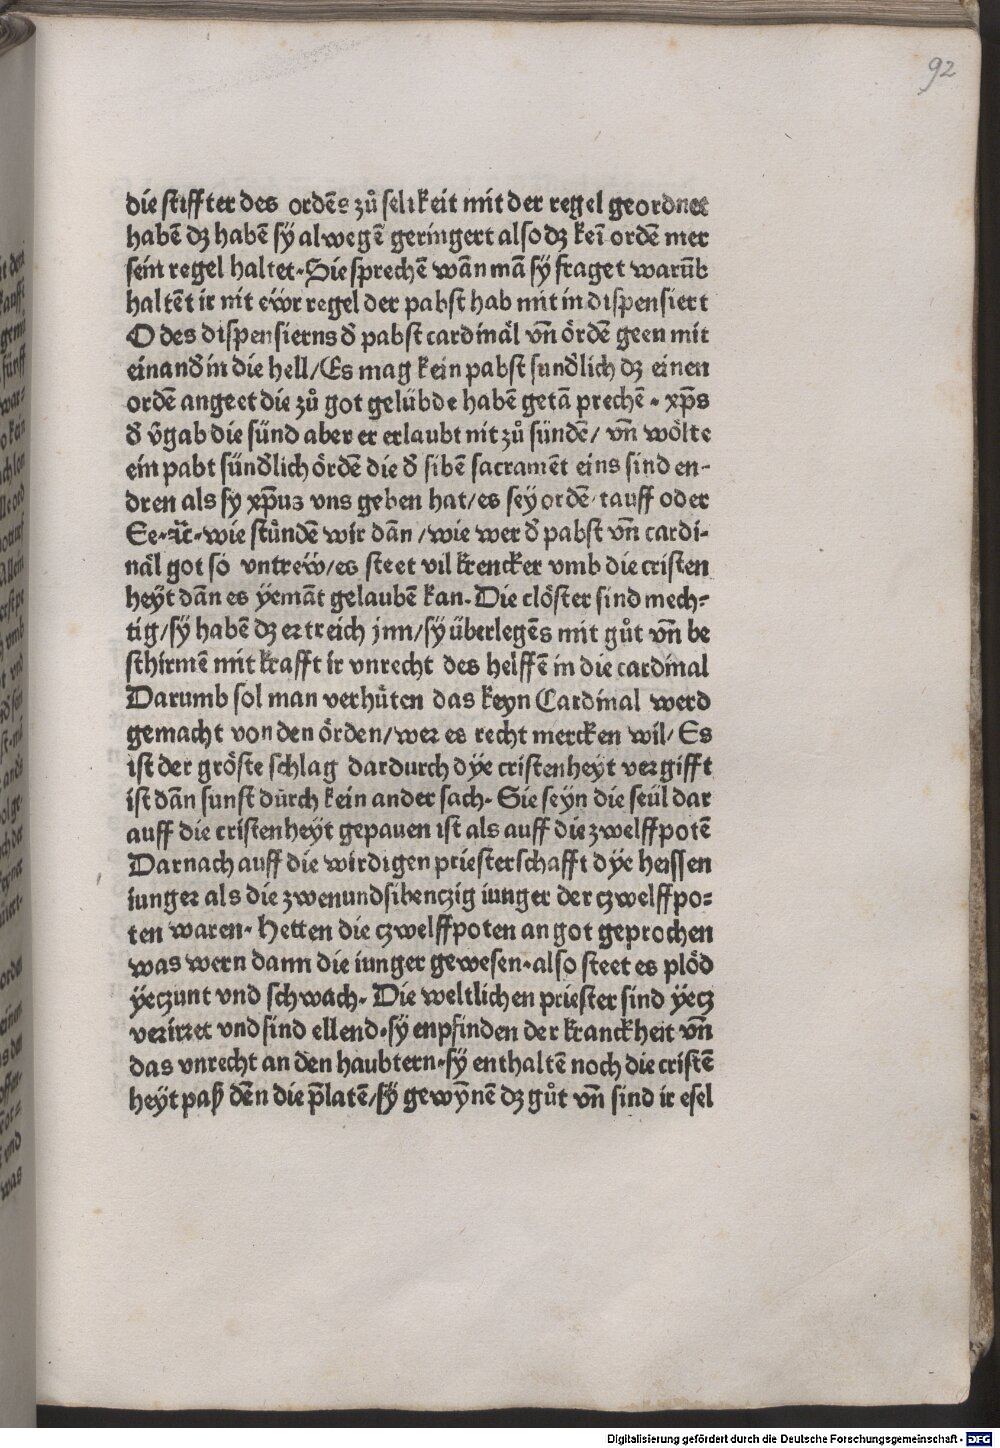 92
die stiffter des ordēs zů selikeit mit der regel geordnet
habē dz habē sÿ alwegē geringert also dz keī ordē mer
sein regel haltet. Sie sprechē wān mā sÿ fraget warūb
haltēt ir nit ewr regel der pabst hab mit in dispensiert
O des dispensierns đ pabst cardinäl vn̄ örđe geen mit
einanđ in die hell/ Es mag kein pabst sunđlich dz einen
ordē angeet die zů got gelübde habē getā prechē. xp̄s
đ v̄gab die sünd aber er erlaubt nit zů sündē/ vn̄ wölte
ein pabt sünđlich örđe die đ sibē sacramēt eins sind en-
dren als sy xp̄uz vns geben hat/ es seÿ ordē. tauff oder
Ee. ⁊c̄. wie stůndē wir dān /wie wer đ pabst vn̄ cardi-
näl got so vntreẅ/ es steet vil krencker vmb die cristen
heÿt dān es ÿemāt gelaubē kan. Die clöster sind mech-
tig/ sÿ habē dz ertreich jnn/ sÿ überlegēs mit gůt vn̄ be
schirmē mit krafft ir vnrecht des helffē in die cardinal
Darumb sol man verhůten das keyn Cardinal werd
gemacht von den örden/ wer es recht mercken wil/ Es
ist der gröste schlag dardurch dÿe cristenheÿt vergifft
ist dān sunst dürch kein ander sach. Sie seyn die seül dar
auff die cristenheÿt gepauen ist als auff die zwelffpotē
Darnach auff die wirdigen priesterschafft dÿe heissen
iunger als die zwenundsibenczig iunger der czwelffpo-
ten waren. Hetten die czwelffpoten an got geprochen
was wern dann die iunger gewesen. also steet es plöd
ÿeczunt vnd schwach. Die weltlichen priester sind ÿecz
verirret vnd sind ellend. sÿ enpfinden der kranckheit vn̄
das vnrecht an den haubtern. sÿ enthaltē noch die cristē
heÿt paß dēn die p̄latē/ sÿ gewÿnē dz gůt vn̄ sind ir esel
Digitalisierung gefördert durch die Deutsche Forschungsgemeinschaft - DFG